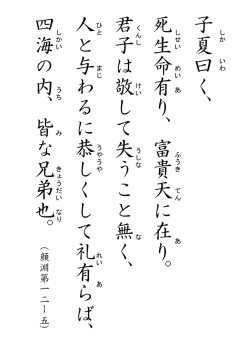 子夏曰く、
死生命有り、富貴天に在り。
君子は敬して失うこと無く、
人と与わるに恭しくして礼有らば、
四海の内、皆な兄弟也。
(顔淵第一二―五)